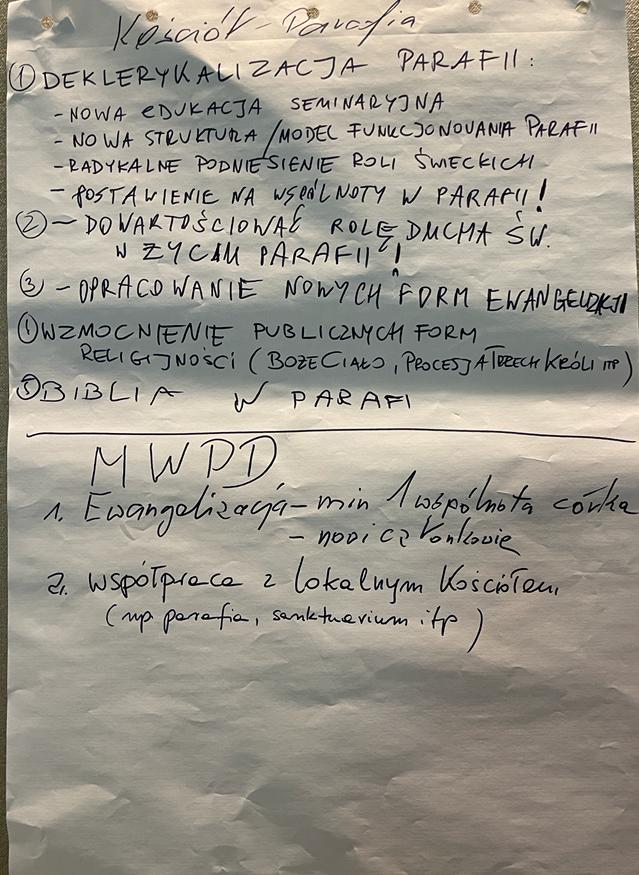 Kościół - Parafia
① DEKLERYKALIZACJA PARAFII:
- NOWA EDUKACJA SEMINARYJNA
- NOWA STRUKTURA / MODEL FUNKCJONOWANIA PARAFII
- RADYKALNE PODNIESIENIE ROLI ŚWIECKICH
- POSTAWIENIE NA WSPÓLNOTY W PARAFII!
② - DOWARTOŚCIOWAĆ ROLĘ DUCHA ŚW.
W ŻYCIU PARAFII!
③ - OPRACOWANIE NOWYCH FORM EWANGELIZACJI
① WZMOCNIENIE PUBLICZNYCH FORM
RELIGIJNOŚCI (BOŻE CIAŁO, PROCESJA TRZECH KRÓLI ITP)
⑤ BIBLIA W PARAFI
MWPD
1. Ewangelizacja - min 1 wspólnota córka
- nowi członkowie
2. współpraca z lokalnym Kościołem
(np. parafia, sanktuarium itp)